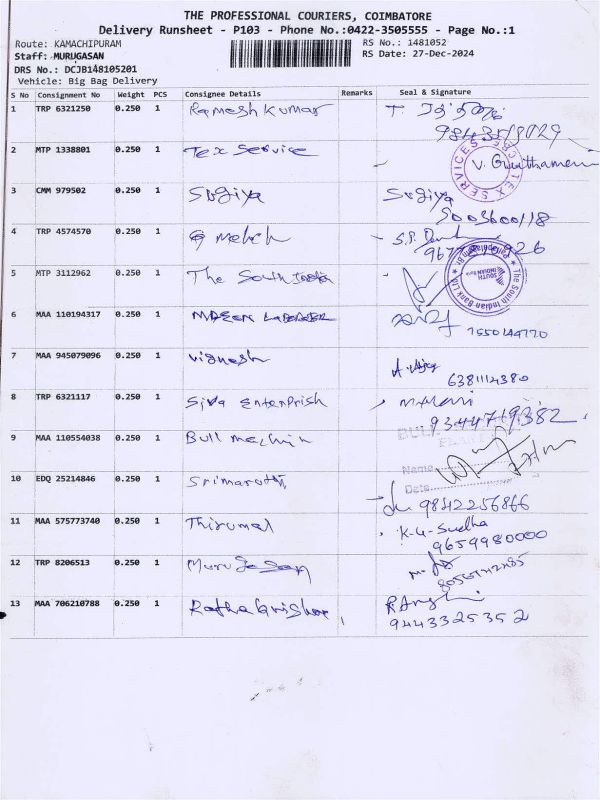 THE PROFESSIONAL COURIERS, COIMBATORE
Delivery Runsheet - P103 - Phone No.:0422-3505555 - Page No.:1
Route: KAMACHIPURAM
RS No.: 1481052
Staff: MURUGASAN
RS Date: 27-Dec-2024
DRS No.: DCJB148105201
Vehicle: Big Bag Delivery
S No Consignment No Weight PCS Consignee Details Remarks Seal & Signature
1 TRP 6321250 0.250 1 Ramesh Kumar
2 MTP 1338801 0.250 1 Tex Service
3 CMM 979502 0.250 1 Srgiya Srgiya
4 TRP 4574570 0.250 1
5 MTP 3112962 0.250 1 The South India
The South Indian Bank Ltd
SOUTH INDIAN Bank
6 MAA 110194317 0.250 1
7550144770
7 MAA 945079096 0.250 1 Vignesh
6381114380
8 TRP 6321117 0.250 1 Siva Enterprish
9344719382
9 MAA 110554038 0.250 1 Bull Machin
Name
Date
10 EDQ 25214846 0.250 1 Srimaruti
9842256866
11 MAA 575773740 0.250 1 Thirumal K-G-Sudha
9659980000
12 TRP 8206513 0.250 1 Murugesan
13 MAA 706210788 0.250 1
9443325352